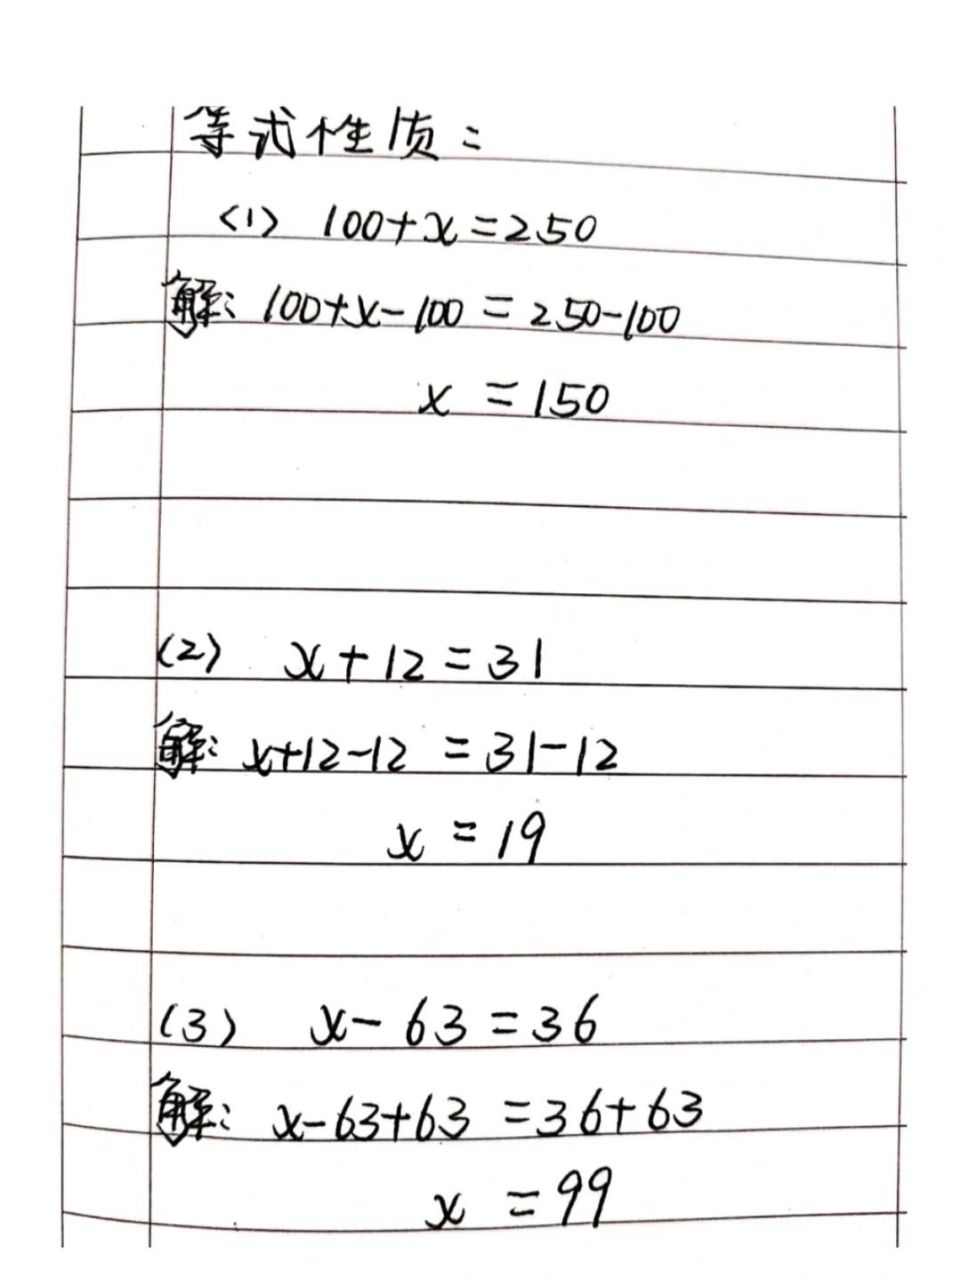 等式性质：
(1) 100+x=250
解：100+x-100=250-100
x=150
(2) x+12=31
解：x+12-12=31-12
x=19
(3) x-63=36
解：x-63+63=36+63
x=99